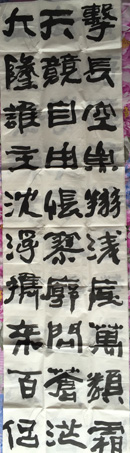 擊長空魚翔浅底萬類霜
天競自由悵寥廓問蒼茫
大墬誰主沈浮攜来百侶